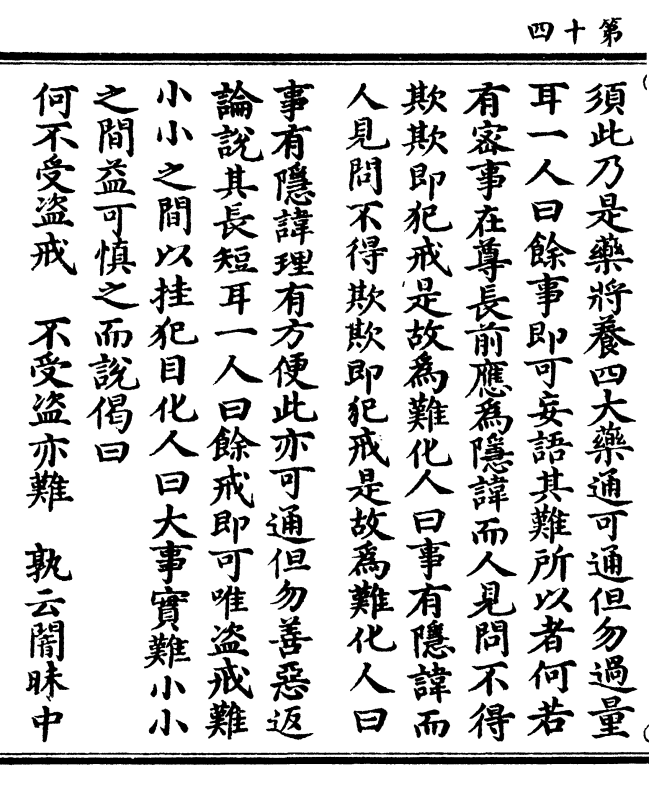 第十四
須此乃是藥將養四大藥通可通但勿過量
耳一人曰餘事即可妄語其難所以者何若
有密事在尊長前應為隱諱而人見問不得
欺欺即犯戒是故為難化人曰事有隱諱而
人見問不得欺欺即犯戒是故為難化人曰
事有隱諱理有方便此亦可通但勿善惡返
論說其長短耳一人曰餘戒即可唯盜戒難
小小之間以挂犯目化人曰大事實難小小
之間益可慎之而說偈曰
何不受盜戒　不受盜亦難　孰云闇昧中